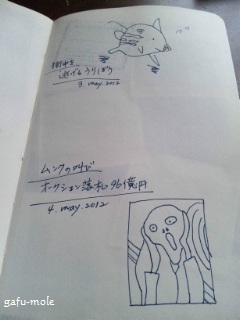 街中を
逃げるうりぼう
3. may. 2012
ムンクの叫び
オークション落札96億円
4. may. 2012
gafu-mole